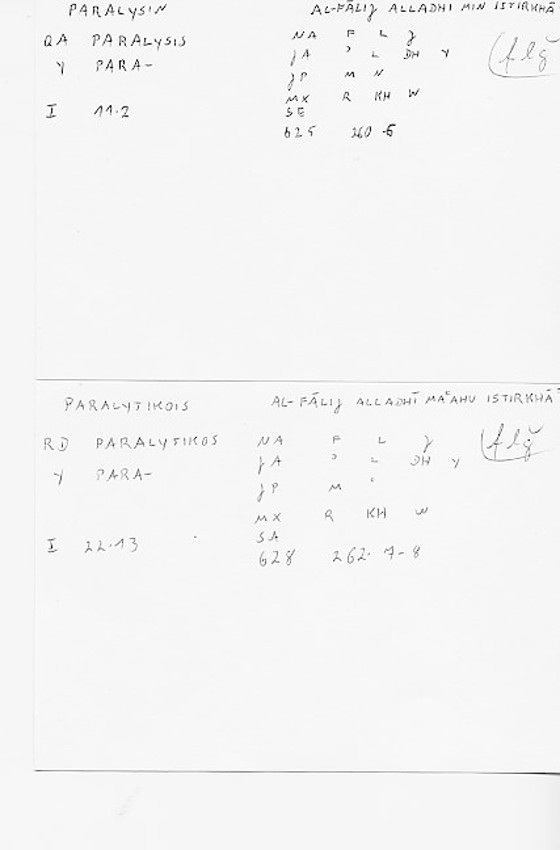 PARALYSIN AL-FĀLIJ ALLADHI MIN ISTIRKHĀ
QA PARALYSIS NA F L J
flǧ
Y PARA- JA ʾ L DH Y
JP M N
MX R KH W
I 11.2 SE
625 260 -6
PARALYTIKOIS AL-FĀLIJ ALLADHĪ MAʿAHU ISTIRKHĀʾ
RD PARALYTIKOS NA F L J
flǧ
Y PARA- JA ʾ L DH Y
JP M ʿ
MX R KH W
I 22.13 SA
628 262. 7-8